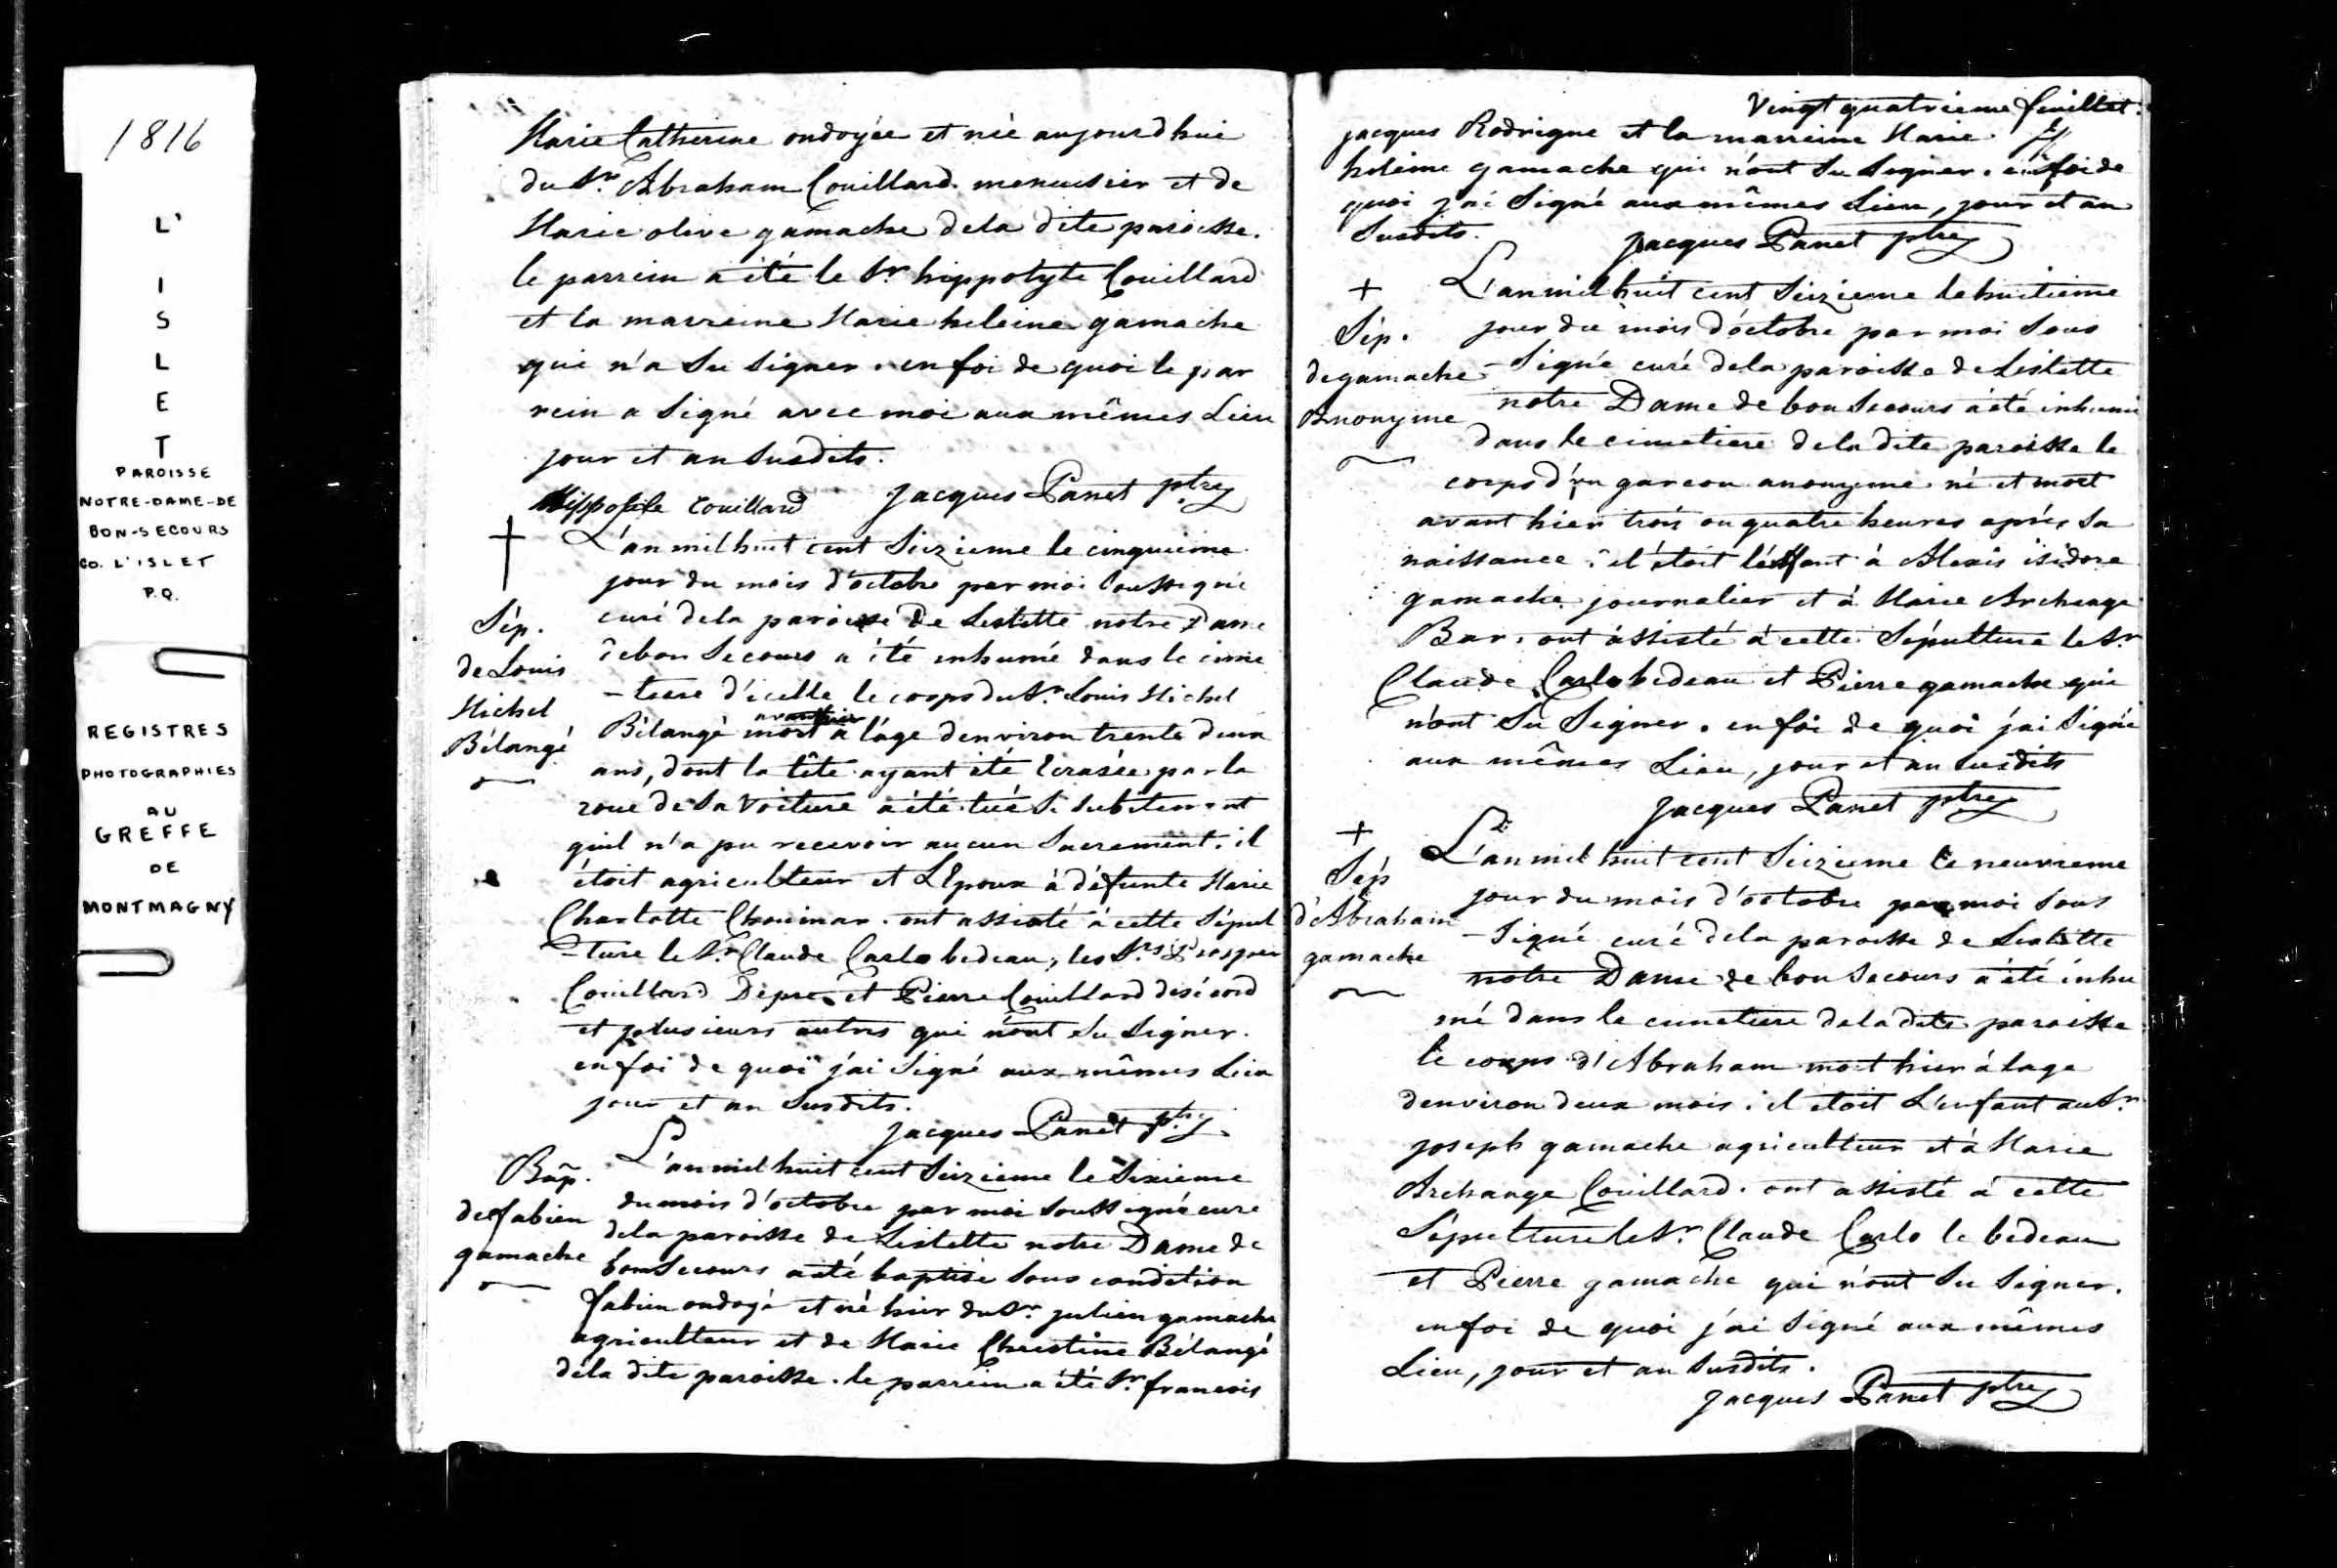 1816
L'
I
S
L
E
T
PAROISSE
NOTRE-DAME-DE
BON-SECOURS
CO. L'ISLET
P.Q.
REGISTRES
PHOTOGRAPHIES
AU
GREFFE
DE
MONTMAGNY
Marie Catherine ondoyée et née aujourd'hui
du Sr. Abraham Couillard menuisier et de
Marie olive gamache dela dite paroisse.
le parrein a été le Sr. hippolyte Couillard
et la marreine Marie heleine gamache
qui n'a Su Signer. en foi de quoi le par
rein a Signé avec moi aux mêmes Lieu
jour et an Susdits.
Hippolite Couillard Jacques Panet ptre
†
Sép.
de Louis
Michel
Bélangé
L'an mil huit cent Seizieme le cinquieme
jour du mois d'octobre par moi Soussigné
curé dela paroisse de Leslette notre Dame
de bon Secours a été inhumé dans le cime
-tiere d'icelle le corps du Sr. Louis Michel
avanthier
Bélangé mort a l'age denviron trente deux
ans, dont la tête ayant été Ecrasée par la
roue de Sa Voiture a été tué Si Subitement
quil n'a pu recevoir aucun Sacrement. il
étoit agriculteur et L'Epoux à défunte Marie
Charlotte Chouinar. ont assisté à cette Sépul
-ture le Sr. Claude Carlo bedeau, les Srs. Prosper
Couillard Dépré et Pierre Couillard
et plusieurs autres qui n'ont Su Signer.
en foi de quoi j'ai Signé aux mêmes Lieu
jour et an Susdits.
Jacques Panet ptre
Bap.
de fabien
gamache
L'an mil huit cent Seizieme le Sixieme
du mois d'octobre par moi Soussigné curé
dela paroisse de Leslette notre Dame de
bon Secours a été baptisé Sous condition
fabien ondoyé et né hier du Sr. julien gamache
agriculteur et de Marie Christine Bélangé
dela dite paroisse. le parrein a été Sr. francois
Vingt quatrieme feuillet.
jacques Rodrigue et la marreine Marie
heleine gamache qui n'ont Su Signer. en foi de
quoi j'ai Signé aux mêmes Lieu, jour et an
Susdits. Jacques Panet ptre
+
Sép.
de gamache
Anonyme
L'an mil huit cent Seizieme le huitieme
jour du mois d'octobre par moi Sous
-Signé curé dela paroisse de Leslette
notre Dame de bon Secours a été inhumé
dans le cimetiere dela dite paroisse le
corps d'un garcon anonyme né et mort
avant hier trois ou quatre heures après Sa
naissance. il étoit l'enfant à Alexis isidore
gamache journalier et à Marie Archange
Bar. ont assisté à cette Sépulture le Sr.
Claude Carlo bedeau et Pierre gamache qui
n'ont Su Signer. en foi de quoi j'ai Signé
aux mêmes Lieu, jour et an Susdits
Jacques Panet ptre
+
Sép
d'Abraham
gamache
L'an mil huit cent Seizieme le neuvieme
jour du mois d'octobre par moi Sous
-Signé curé dela paroisse de Leslette
notre Dame de bon Secours a été inhu
mé dans le cimetiere dela dite paroisse
le corps d'Abraham mort hier à lage
denviron deux mois. il etoit L'enfant au Sr.
joseph gamache agriculteur et à Marie
Archange Couillard. ont assisté à cette
Sépulture le Sr. Claude Carlo le bedeau
et Pierre gamache qui n'ont Su Signer.
en foi de quoi j'ai Signé aux mêmes
Lieu, jour et an Susdits.
Jacques Panet ptre